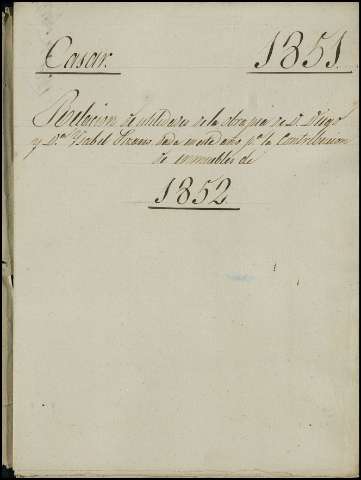 Casar. 1851.
Relacion de utilidades de la obra pia de D. Diego
y D.ª Ysabel dada en este año p.ª la Contribucion
de inmuebles de
1852.